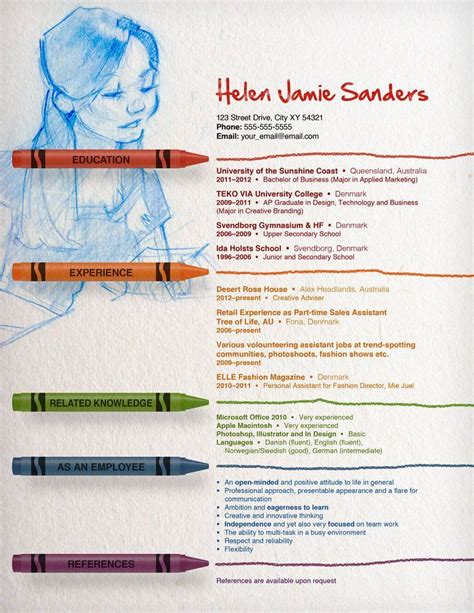 Helen Jamie Sanders
123 Street Drive, City XY 54321
Phone: 555-555-5555
Email: your_email@email.com
EDUCATION
University of the Sunshine Coast • Queensland, Australia
2011–2012 • Bachelor of Business (Major in Applied Marketing)
TEKO VIA University College • Denmark
2009–2011 • AP Graduate in Design, Technology and Business
(Major in Creative Branding)
Svendborg Gymnasium & HF • Denmark
2006–2009 • Upper Secondary School
Ida Holsts School • Svendborg, Denmark
1996–2006 • Junior and Secondary School
EXPERIENCE
Desert Rose House • Alex Headlands, Australia
2012–present • Creative Adviser
Retail Experience as Part-time Sales Assistant
Tree of Life, AU • Fona, Denmark
2006–present
Various volounteering assistant jobs at trend-spotting
communities, photoshoots, fashion shows etc.
2009–present
ELLE Fashion Magazine • Denmark
2010–2011 • Personal Assistant for Fashion Director, Mie Juel
RELATED KNOWLEDGE
Microsoft Office 2010 • Very experienced
Apple Macintosh • Very experienced
Photoshop, Illustrator and In Design • Basic
Languages • Danish (fluent), English (fluent),
Norwegian/Swedish (good), German (intermediate)
AS AN EMPLOYEE
• An open-minded and positive attitude to life in general
• Professional approach, presentable appearance and a flare for
communication
• Ambition and eagerness to learn
• Creative and innovative thinking
• Independence and yet also very focused on team work
• The ability to multi-task in a busy environment
• Respect and reliability
• Flexibility
REFERENCES
References are available upon request